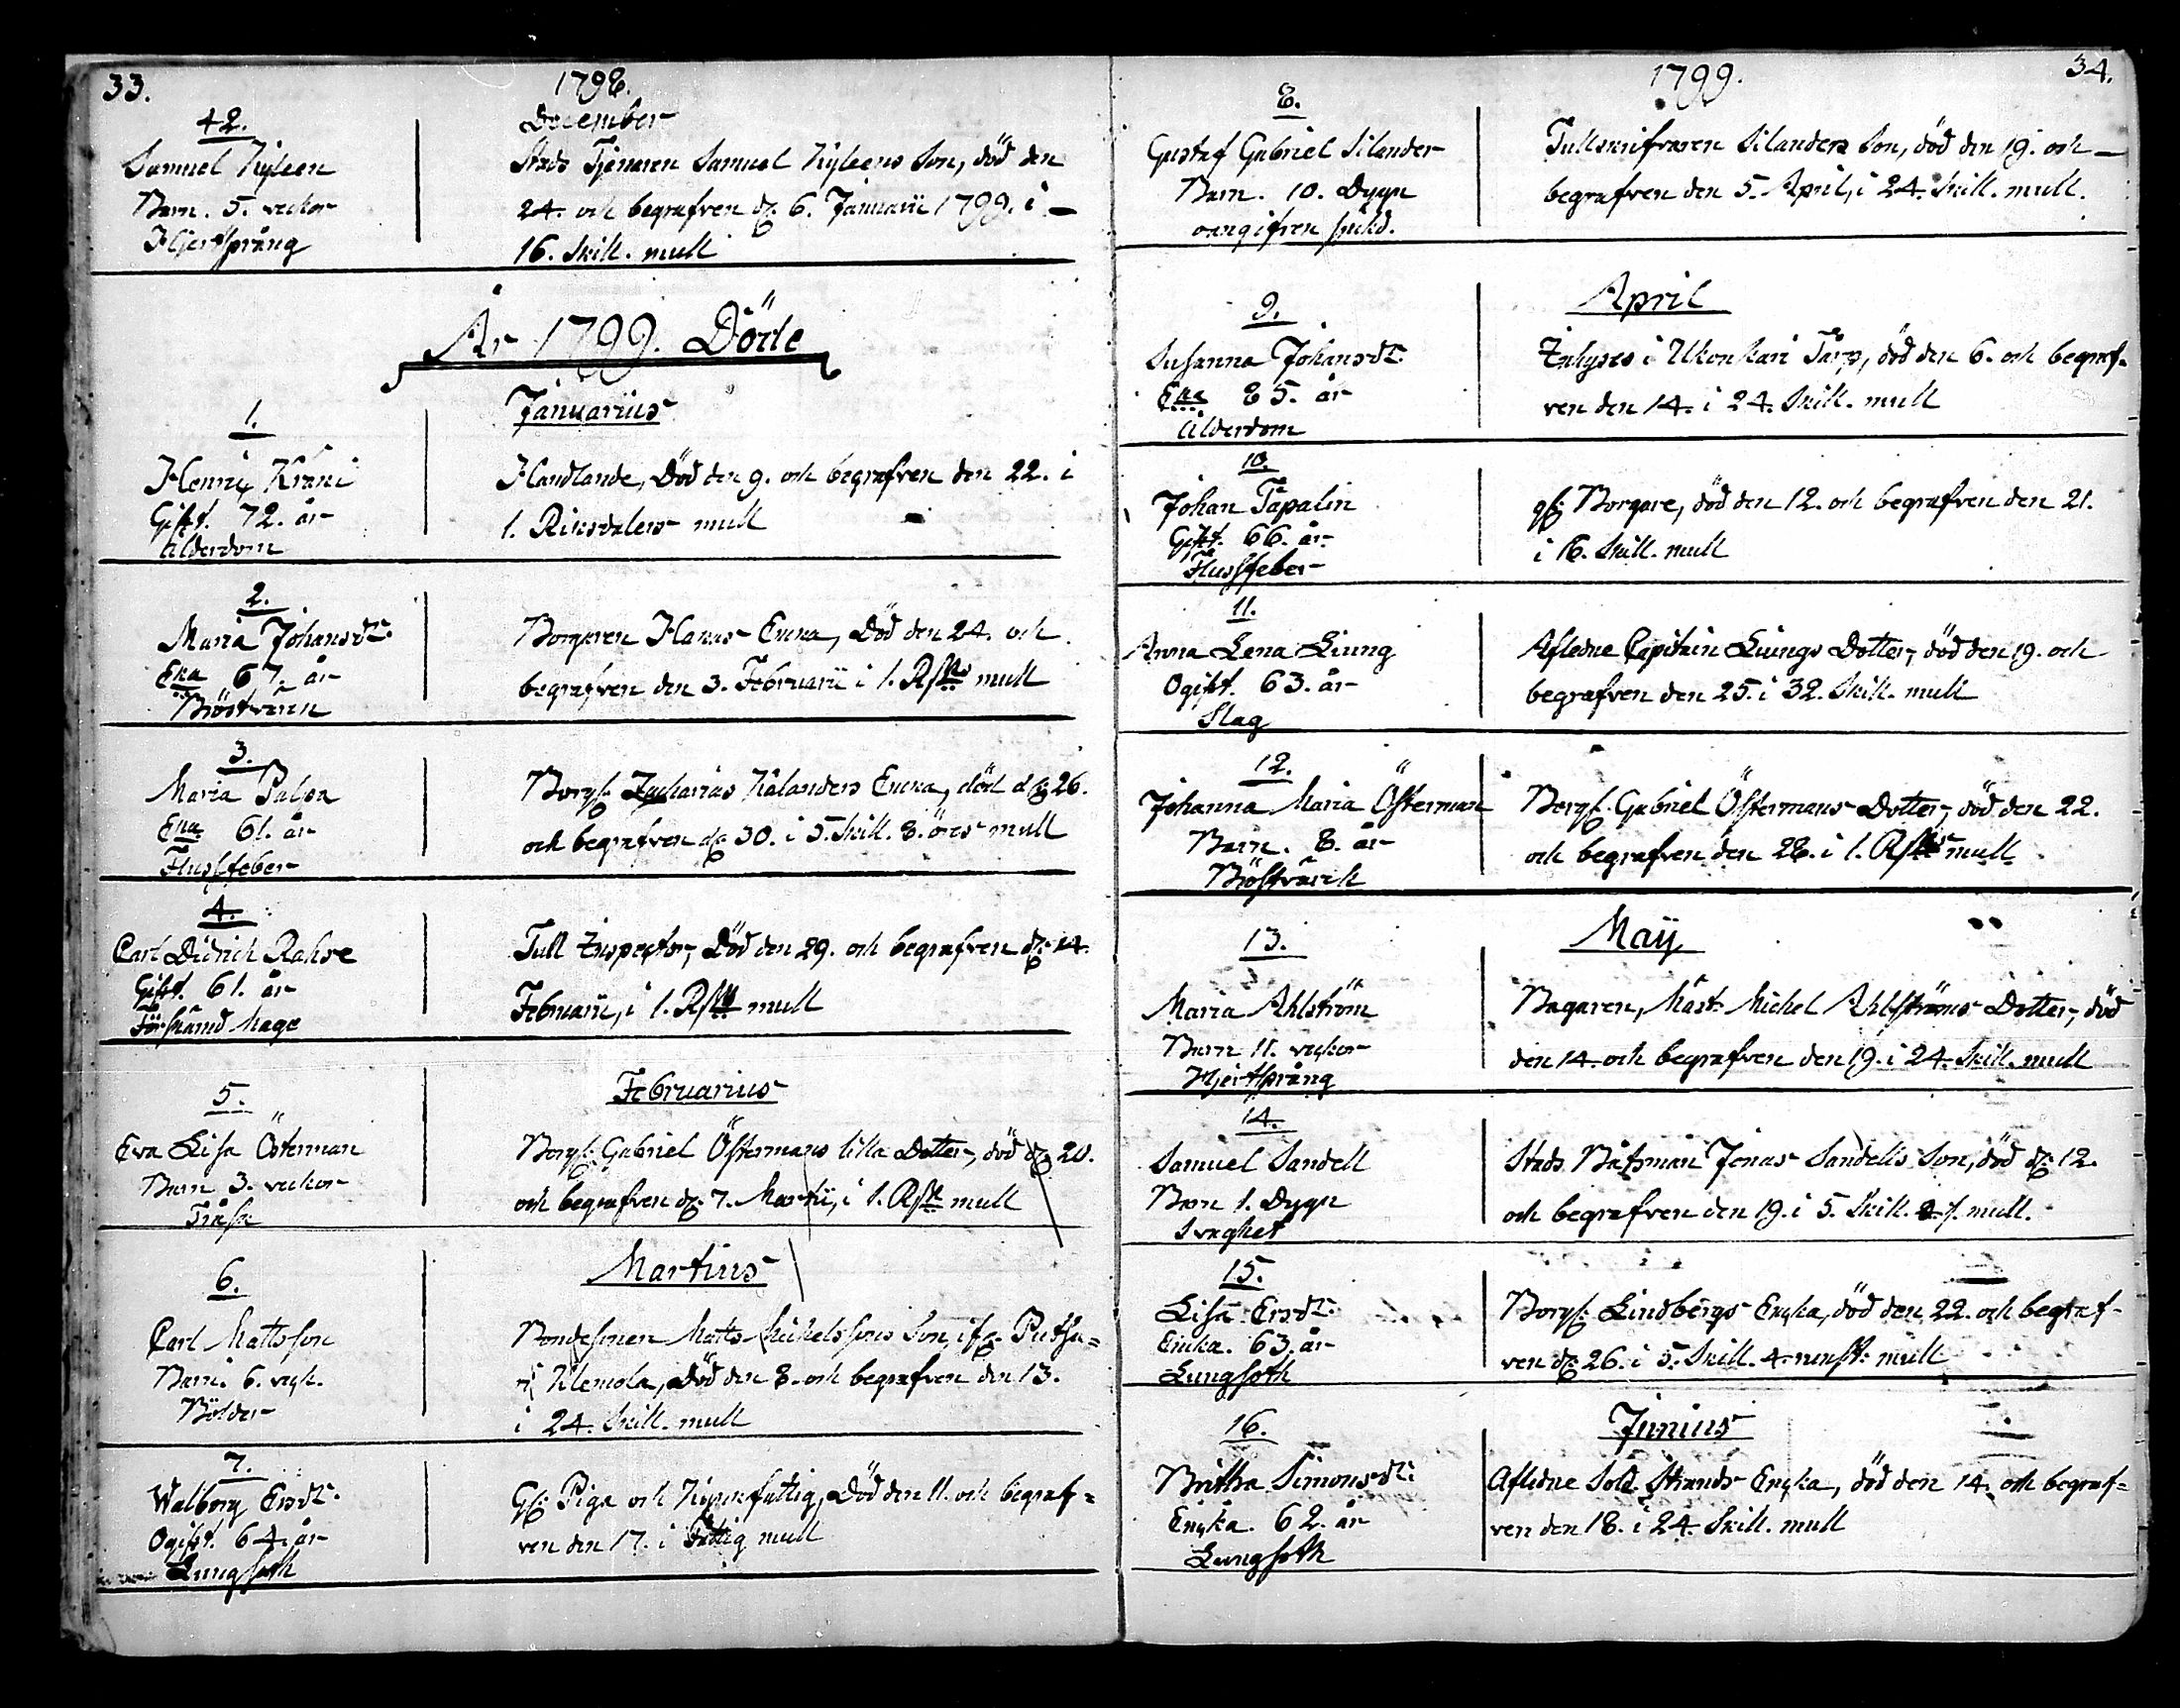 33.
1798.
December
42.
Samuel Kyleen
Barn. 5. veckor
Hjertsprång
Stads Tjenaren Samuel Kyleens Son, död den
24. och begrafven d: 6. Januarii 1799. i
16. Skill. mull
År 1799. Döde
Januarius
1.
Henric Krani
Gift. 72. år
Ålderdom
Handlande, Död den 9. och begrafven den 22. i
1. Riksdalers mull
2.
Maria Johansdr:
Enka 67. år
Bröstvärk
Borgaren Enka, Död den 24. och
begrafven den 3. Februarii i 1. Rd mull
3.
Maria Palsa
Enka 61. år
Flussfeber
Borg: Zacharias Kålanders Encka, död d: 26.
och begrafven d: 30. i 5. Skill. 8. öres mull
4.
Carl Didrich Rahse
Gift. 61. år
Förskämd Mage
Tull Inspector, Död den 29. och begrafven d: 14.
Februarii, i 1. Rd mull
Februarius
5.
Eva Lisa Österman
Barn 3. veckor
Tråsk
Borg: Gabriel Östermans lilla Dotter, död d: 20.
och begrafven d: 7. Martii, i 1. Rd mull
Martius
6.
Carl Mattsson
Barn. 6. veck.
Bölder
Bondesonen Matts Michelssons Son, if: Putsa=
ri Klemola, Död den 8. och begrafven den 13.
i 24. Skill. mull
7.
Walborg Ersdr:
Ogift. 64. år
Lungsoth
Gf: Piga och Kyrckfattig, Död den 11. och begraf=
ven den 17. i Fattig mull
1799.
34.
8.
Gustaf Gabriel Silander
Barn. 10. Dygn
oangifven siukd.
Tullskrifvaren Silanders Son, död den 19. och
begrafven den 5. April, i 24. Skill. mull.
April
9.
Susanna Johansdr:
Enka 85. år
Ålderdom
Inhyses i Ukonkari Tårp, död den 6. och begraf=
ven den 14. i 24. Skill. mull
10.
Johan Tapalin
Gift. 66. år
Flussfeber
gf: Borgare, död den 12. och begrafven den 21.
i 16. Skill. mull
11.
Anna Lena Liung
Ogift. 63. år
Slag
Afledne Capitain Liungs Dotter, död den 19. och
begrafven den 25. i 32. Skill. mull
12.
Johanna Maria Österman
Barn. 8. år
Bröstvärck
Borg: Gabriel Östermans Dotter, död den 22.
och begrafven den 28. i 1. Rd mull
Maij
13.
Maria Ahlström
Barn 11. veckor
Hjertsprång
Bagaren, Mäst: Michel Ahlströms Dotter, död
den 14. och begrafven den 19. i 24. Skill. mull
14.
Samuel Sandell
Barn 1. Dygn
Svaghet
Stads Båtsman Jonas Sandells Son, död d: 12.
och begrafven den 19. i 5. Skill. mull.
15.
Lisa Ersdr:
Encka. 63. år
Lungsoth
Borg: Lindbergs Encka, död den 22. och begraf-
ven d: 26. i 5. Skill. 4. runst: mull
Junius
16.
Britha Simonsdr:
Encka. 62. år
Lungsoth
Afledne Sold. Strands Encka, död den 14. och begraf=
ven den 18. i 24. Skill. mull